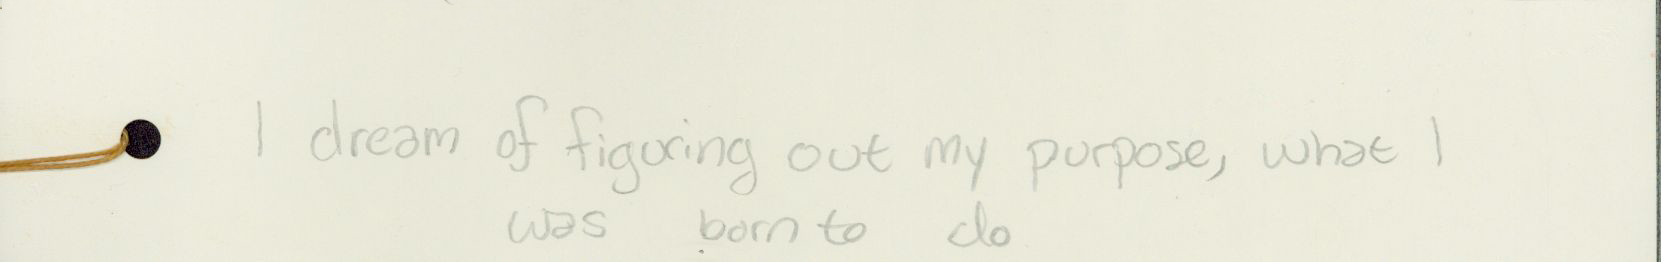 I dream of figuring out my purpose, what I
was born to do